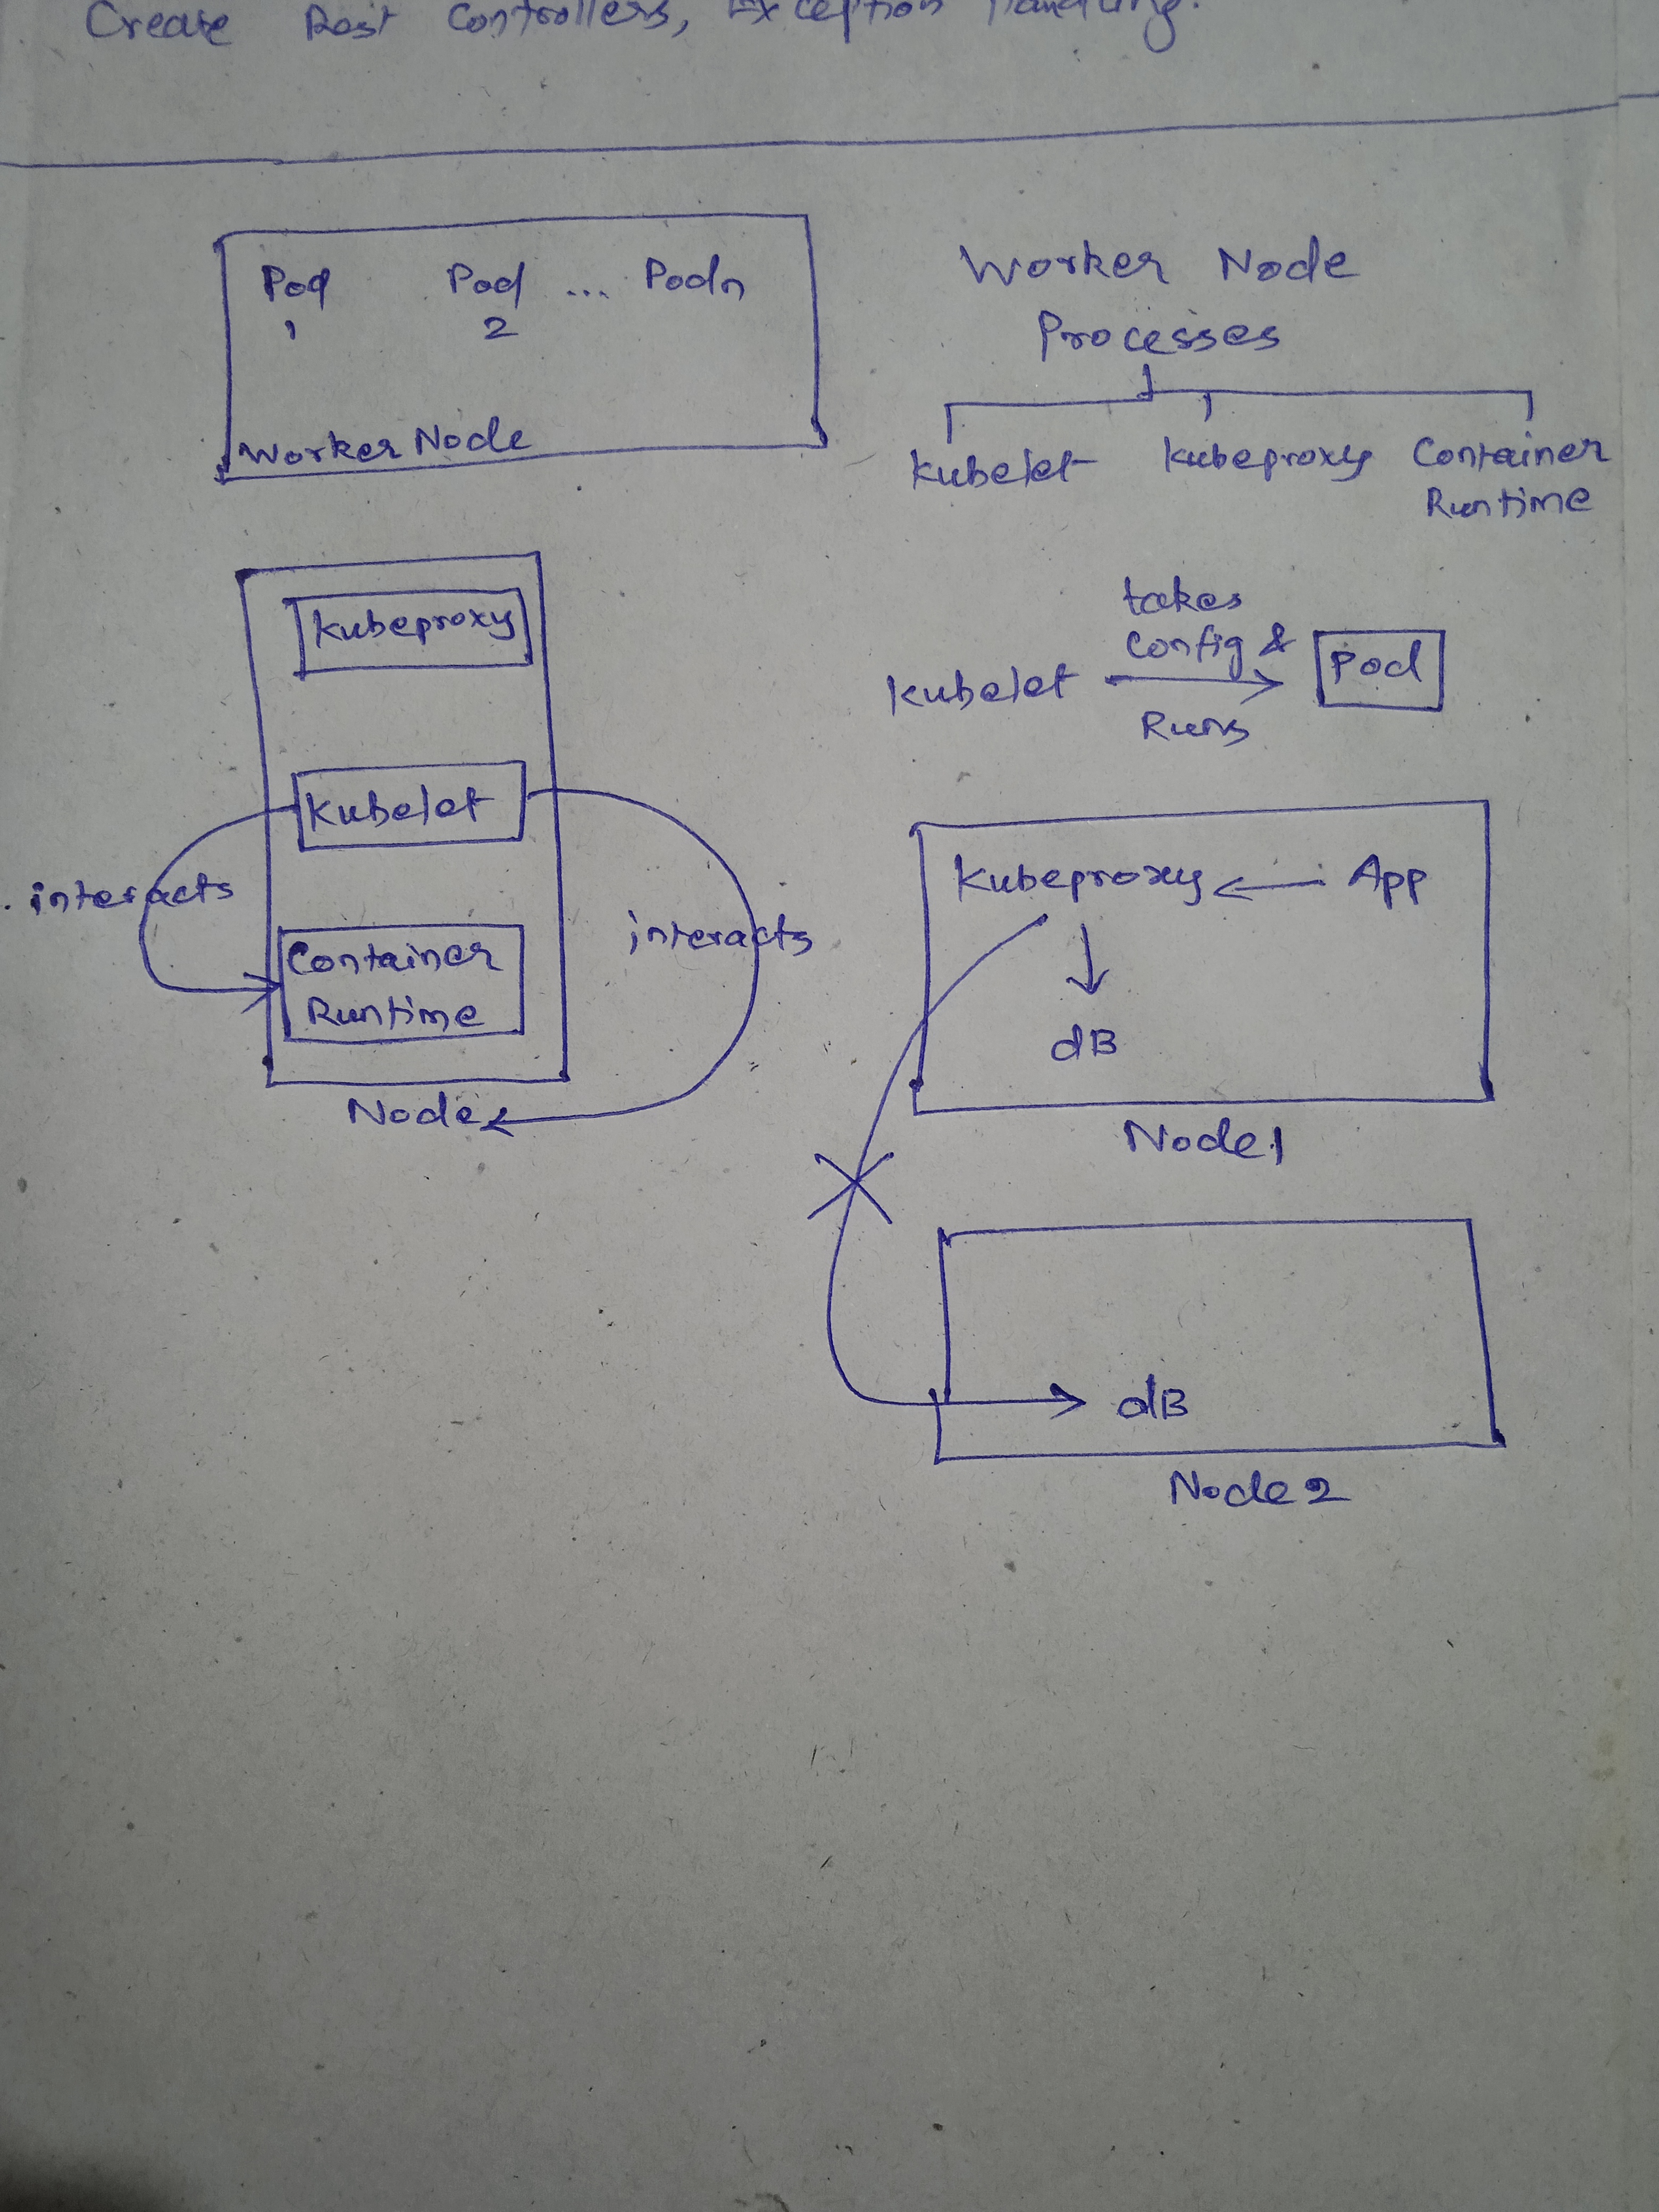 Create Rest Controllers, Exception Handling.
Pod Pod ... Podn
1 2
Worker Node
Worker Node
Processes
Kubelet Kubeproxy Container
Runtime
Kubeproxy
Kubelet
interacts
Container
Runtime
interacts
Node
takes
Config &
Kubelet
Runs
Pod
Kubeproxy App
dB
Node1
dB
Node2